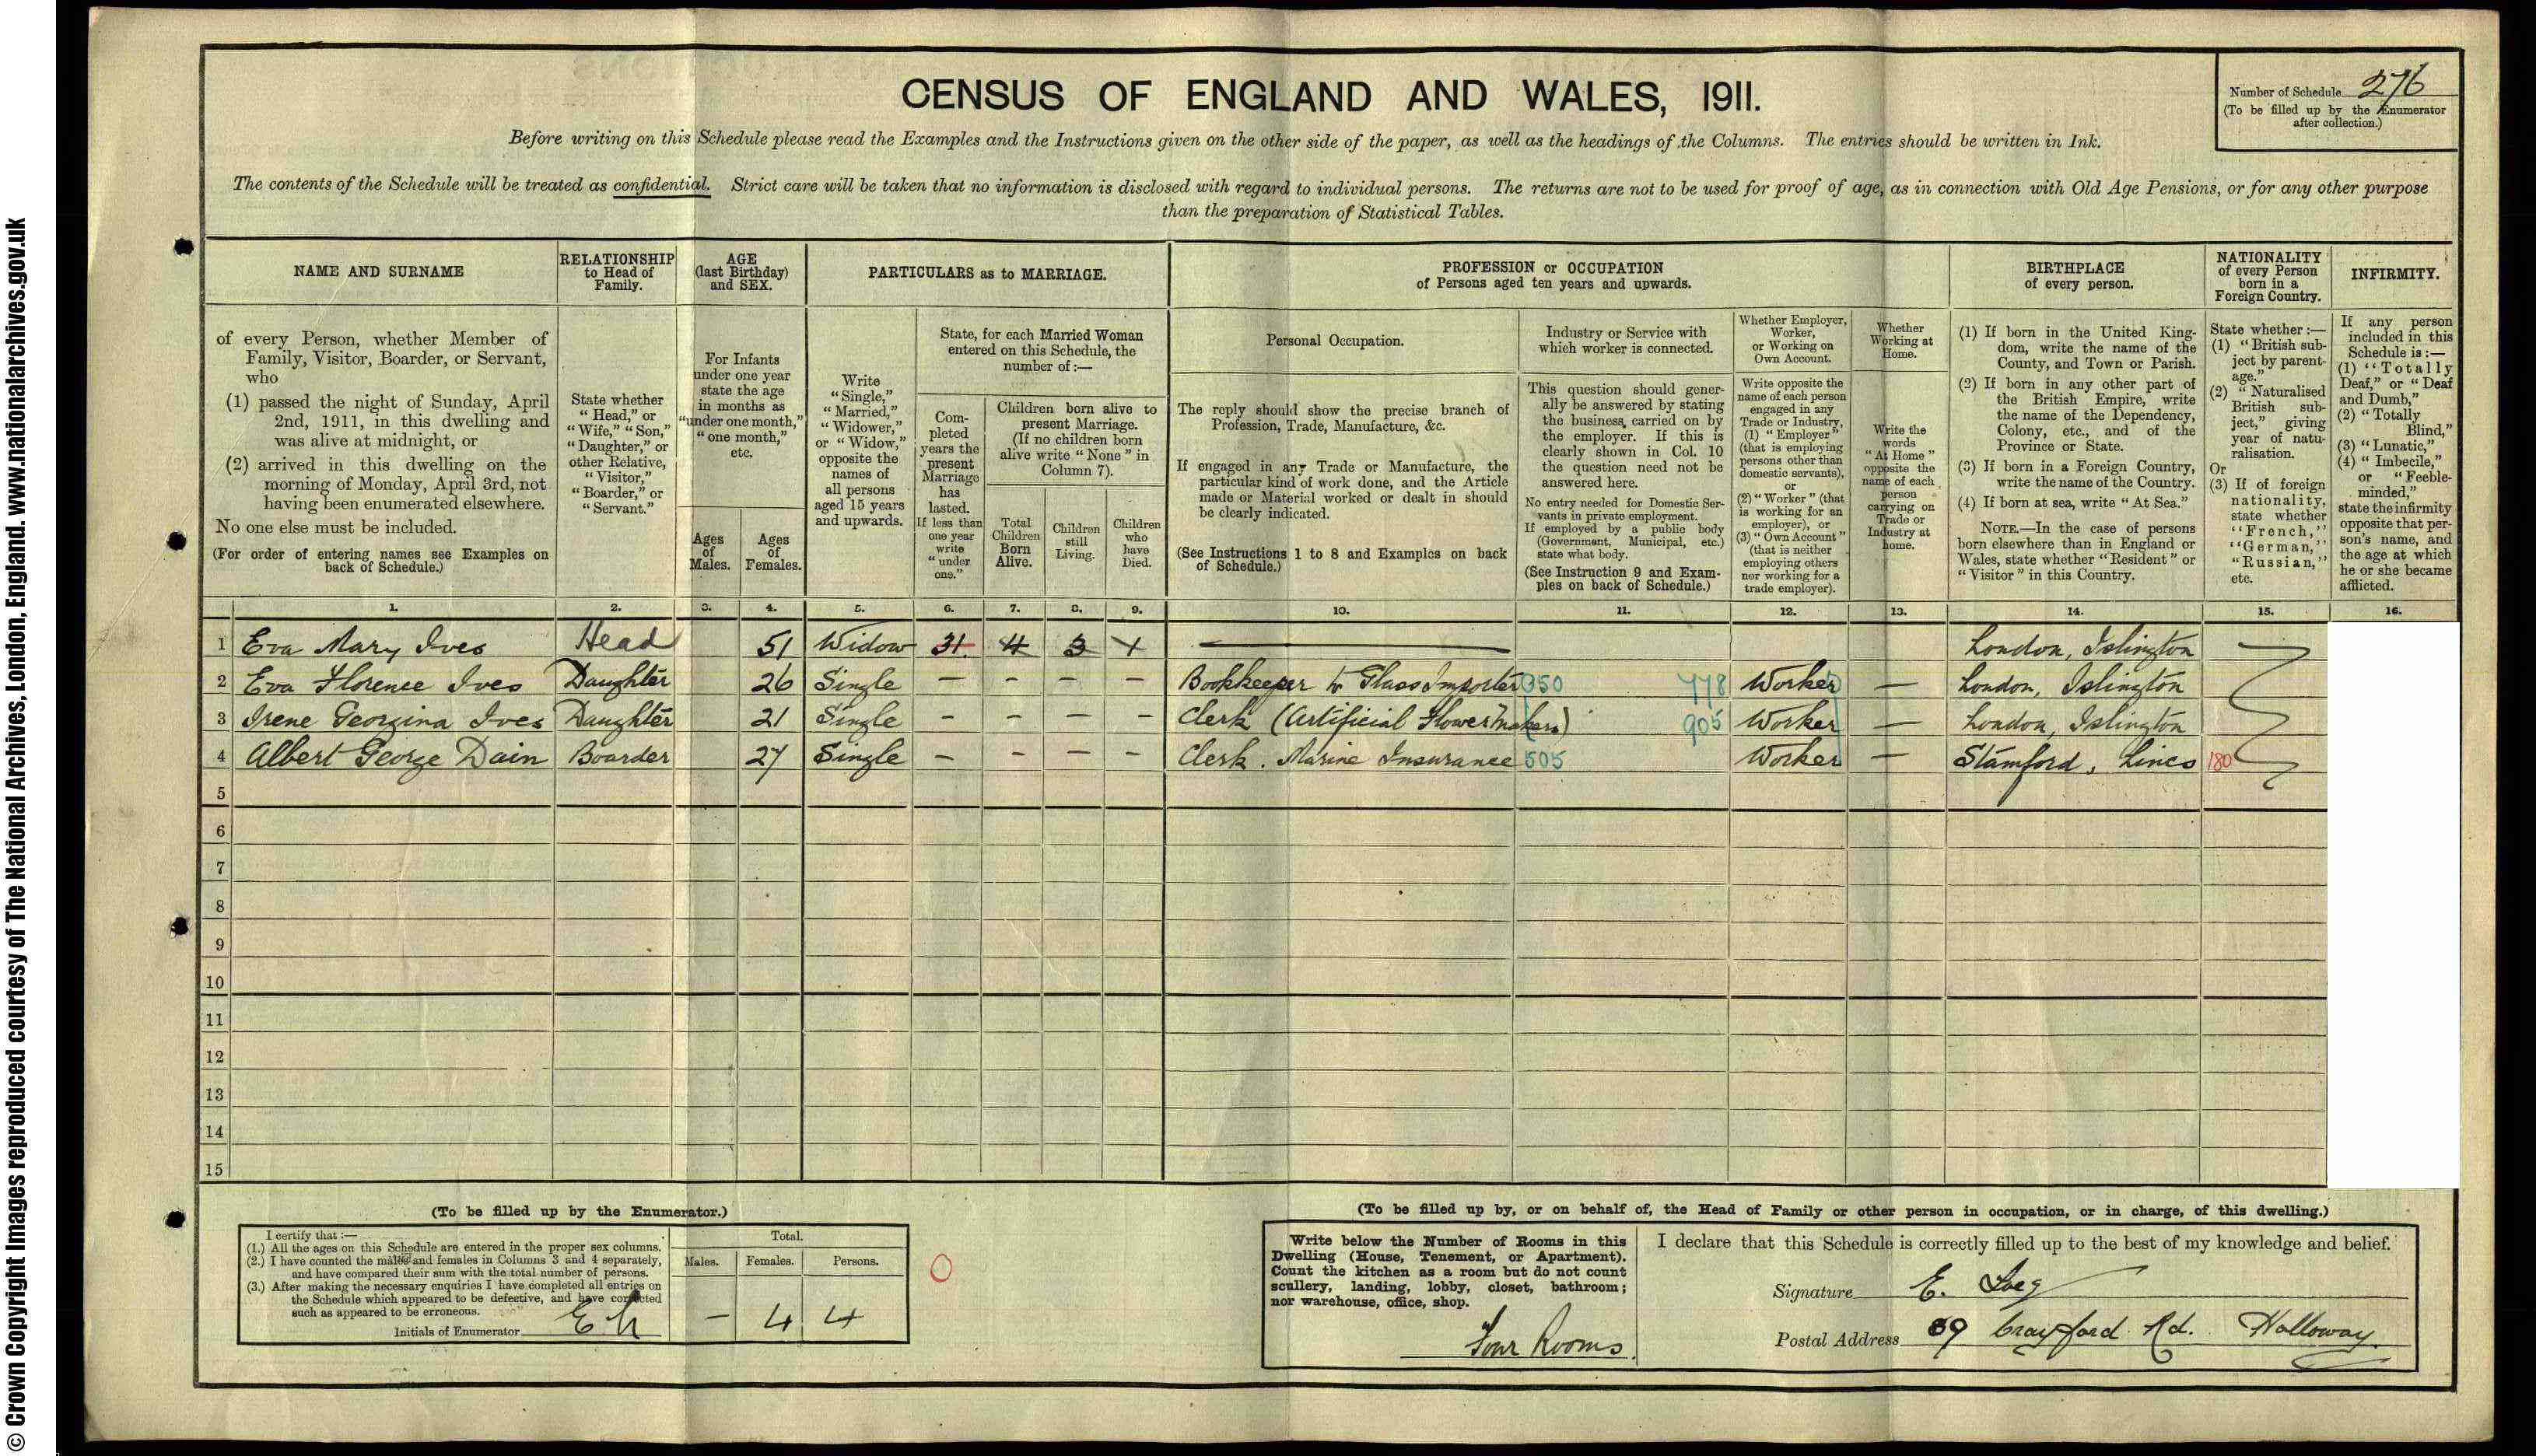 © Crown Copyright Images reproduced courtesy of The National Archives, London, England. www.nationalarchives.gov.uk
CENSUS OF ENGLAND AND WALES, 1911.
Number of Schedule 276
(To be filled up by the Enumerator
after collection.)
Before writing on this Schedule please read the Examples and the Instructions given on the other side of the paper, as well as the headings of the Columns. The entries should be written in Ink.
The contents of the Schedule will be treated as confidential. Strict care will be taken that no information is disclosed with regard to individual persons. The returns are not to be used for proof of age, as in connection with Old Age Pensions, or for any other purpose
than the preparation of Statistical Tables.
NAME AND SURNAME
RELATIONSHIP
to Head of
Family.
AGE
(last Birthday)
and SEX.
PARTICULARS as to MARRIAGE.
PROFESSION or OCCUPATION
of Persons aged ten years and upwards.
BIRTHPLACE
of every person.
NATIONALITY
of every Person
born in a
Foreign Country.
INFIRMITY.
of every Person, whether Member of
Family, Visitor, Boarder, or Servant,
who
(1) passed the night of Sunday, April
2nd, 1911, in this dwelling and
was alive at midnight, or
(2) arrived in this dwelling on the
morning of Monday, April 3rd, not
having been enumerated elsewhere.
No one else must be included.
(For order of entering names see Examples on
back of Schedule.)
State whether
"Head," or
"Wife," "Son,"
"Daughter," or
other Relative,
"Visitor,"
"Boarder," or
"Servant."
For Infants
under one year
state the age
in months as
"under one month,"
"one month,"
etc.
Ages
of
Males.
Ages
of
Females.
Write
"Single,"
"Married,"
"Widower,"
or "Widow,"
opposite the
names of
all persons
aged 15 years
and upwards.
State, for each Married Woman
entered on this Schedule, the
number of:—
Com-
pleted
years the
present
Marriage
has
lasted.
If less than
one year
write
"under
one."
Children born alive to
present Marriage.
(If no children born
alive write "None" in
Column 7).
Total
Children
Born
Alive.
Children
still
Living.
Children
who
have
Died.
Personal Occupation.
The reply should show the precise branch of
Profession, Trade, Manufacture, &c.
If engaged in any Trade or Manufacture, the
particular kind of work done, and the Article
made or Material worked or dealt in should
be clearly indicated.
(See Instructions 1 to 8 and Examples on back
of Schedule.)
Industry or Service with
which worker is connected.
This question should gener-
ally be answered by stating
the business carried on by
the employer. If this is
clearly shown in Col. 10
the question need not be
answered here.
No entry needed for Domestic Ser-
vants in private employment.
If employed by a public body
(Government, Municipal, etc.)
state what body.
(See Instruction 9 and Exam-
ples on back of Schedule.)
Whether Employer,
Worker,
or Working on
Own Account.
Write opposite the
name of each person
engaged in any
Trade or Industry,
(1) "Employer"
(that is employing
persons other than
domestic servants),
or
(2) "Worker" (that
is working for an
employer), or
(3) "Own Account"
(that is neither
employing others
nor working for a
trade employer).
Whether
Working at
Home.
Write the
words
"At Home"
opposite the
name of each
person
carrying on
Trade or
Industry at
home.
(1) If born in the United King-
dom, write the name of the
County, and Town or Parish.
(2) If born in any other part of
the British Empire, write
the name of the Dependency,
Colony, etc., and of the
Province or State.
(3) If born in a Foreign Country,
write the name of the Country.
(4) If born at sea, write "At Sea."
NOTE.—In the case of persons
born elsewhere than in England or
Wales, state whether "Resident" or
"Visitor" in this Country.
State whether:—
(1) "British sub-
ject by parent-
age."
(2) "Naturalised
British sub-
ject," giving
year of natu-
ralisation.
Or
(3) If of foreign
nationality,
state whether
"French,"
"German,"
"Russian,"
etc.
If any person
included in this
Schedule is:—
(1) "Totally
Deaf," or "Deaf
and Dumb,"
(2) "Totally
Blind,"
(3) "Lunatic,"
(4) "Imbecile,"
or "Feeble-
minded,"
state the infirmity
opposite that per-
son's name, and
the age at which
he or she became
afflicted.
1. 2. 3. 4. 5. 6. 7. 8. 9. 10. 11. 12. 13. 14. 15. 16.
1 Eva Mary Ives Head 51 Widow 31. 4 3 1 — London, Islington
2 Eva Florence Ives Daughter 26 Single — — — — Bookkeeper to Glass Importer 350 778 Worker — London, Islington
3 Irene Georgina Ives Daughter 21 Single — — — — Clerk (Artificial Flower Makers) 905 Worker — London, Islington
4 Albert George Dain Boarder 27 Single — — — — Clerk. Marine Insurance 505 Worker — Stamford, Lincs 180
5
6
7
8
9
10
11
12
13
14
15
(To be filled up by the Enumerator.)
I certify that:—
(1.) All the ages on this Schedule are entered in the proper sex columns.
(2.) I have counted the males and females in Columns 3 and 4 separately,
and have compared their sum with the total number of persons.
(3.) After making the necessary enquiries I have completed all entries on
the Schedule which appeared to be defective, and have corrected
such as appeared to be erroneous.
Initials of Enumerator
Total.
Males. Females. Persons.
— 4 4
0
(To be filled up by, or on behalf of, the Head of Family or other person in occupation, or in charge, of this dwelling.)
Write below the Number of Rooms in this
Dwelling (House, Tenement, or Apartment).
Count the kitchen as a room but do not count
scullery, landing, lobby, closet, bathroom;
nor warehouse, office, shop.
Four Rooms
I declare that this Schedule is correctly filled up to the best of my knowledge and belief.
Signature E. Ives
Postal Address 69 Crayford Rd. Holloway.